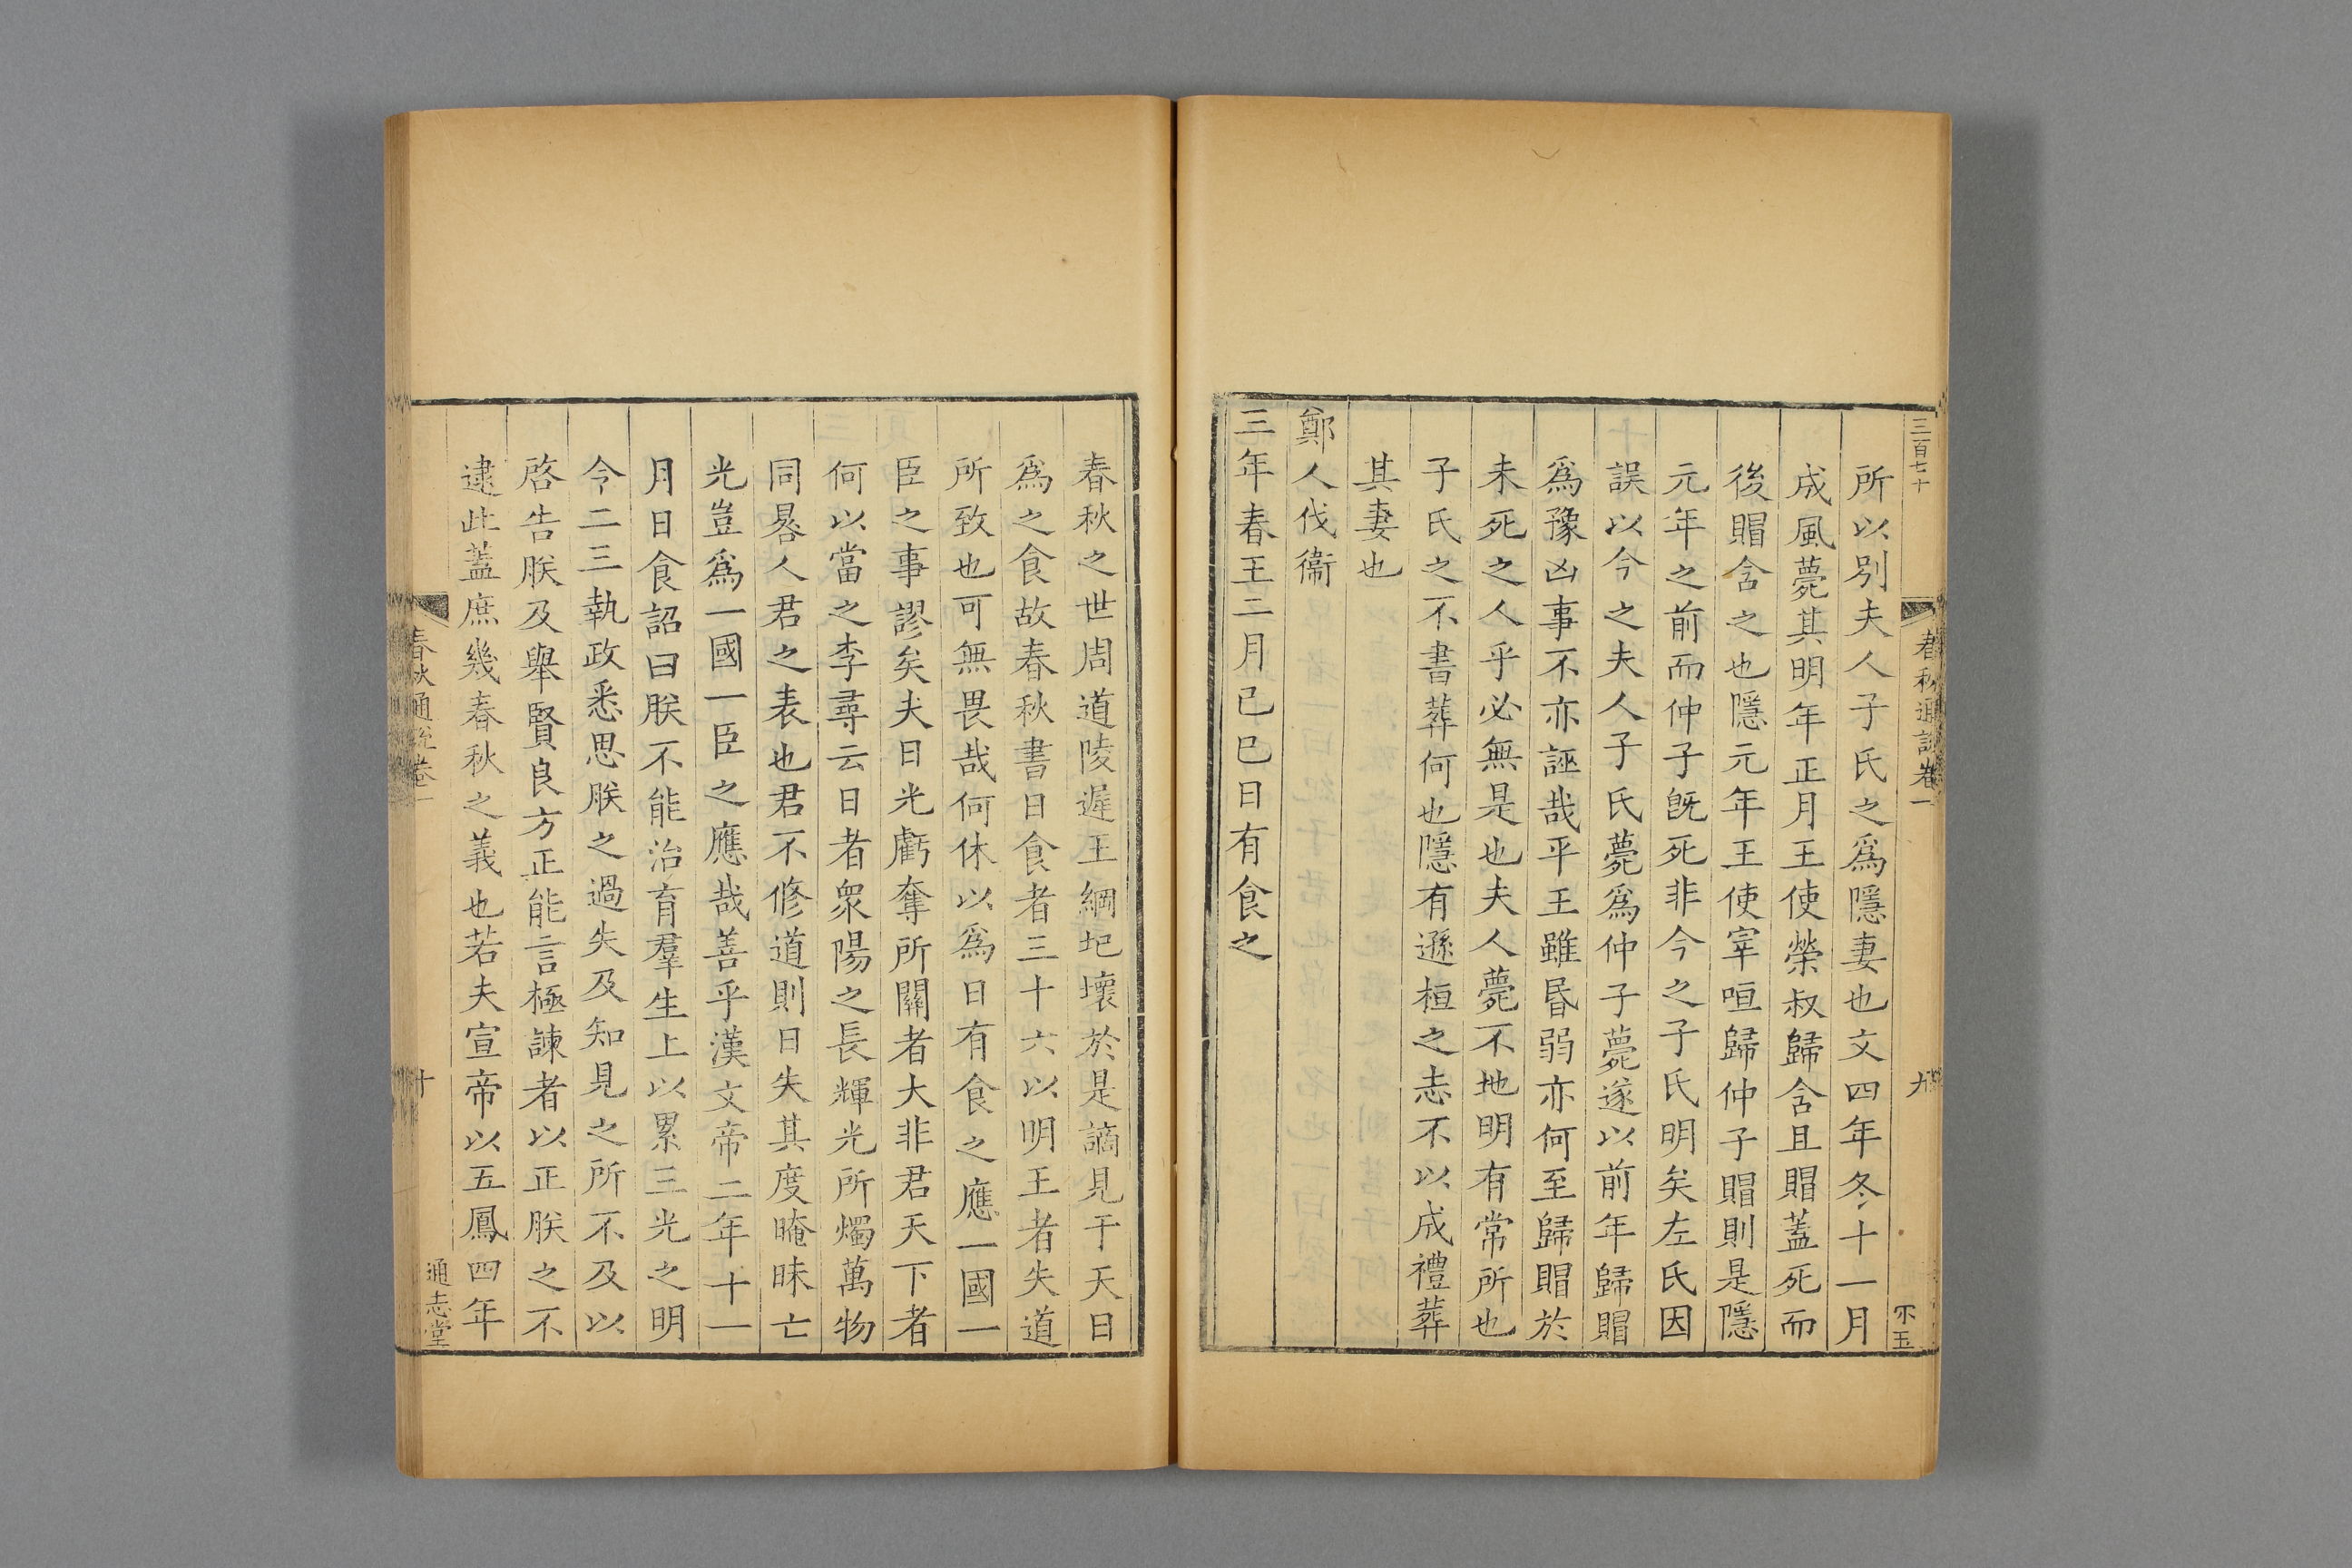 三百七十
春秋通說卷一
九
所以別夫人子氏之爲隱妻也文四年冬十一月
成風薨其明年正月王使榮叔歸含且賵蓋死而
後賵含之也隱元年王使宰咺歸仲子賵則是隱
元年之前而仲子旣死非今之子氏明矣左氏因
誤以今之夫人子氏薨爲仲子薨遂以前年歸賵
爲豫凶事不亦誣哉平王雖昬弱亦何至歸賵於
未死之人乎必無是也夫人薨不地明有常所也
子氏之不書葬何也隱有遜桓之志不以成禮葬
其妻也
鄭人伐衞
三年春王二月己巳日有食之
春秋之世周道陵遲王綱圮壞於是謫見于天日
爲之食故春秋書日食者三十六以明王者失道
所致也可無畏哉何休以爲日有食之應一國一
臣之事謬矣夫日光虧奪所關者大非君天下者
何以當之李尋云日者衆陽之長輝光所燭萬物
同晷人君之表也君不修道則日失其度晻昧亡
光豈爲一國一臣之應哉善乎漢文帝二年十一
月日食詔曰朕不能治育羣生上以累三光之明
令二三執政悉思朕之過失及知見之所不及以
啓告朕及舉賢良方正能言極諫者以正朕之不
逮此蓋庶幾春秋之義也若夫宣帝以五鳳四年
春秋通說卷一
十
通志堂